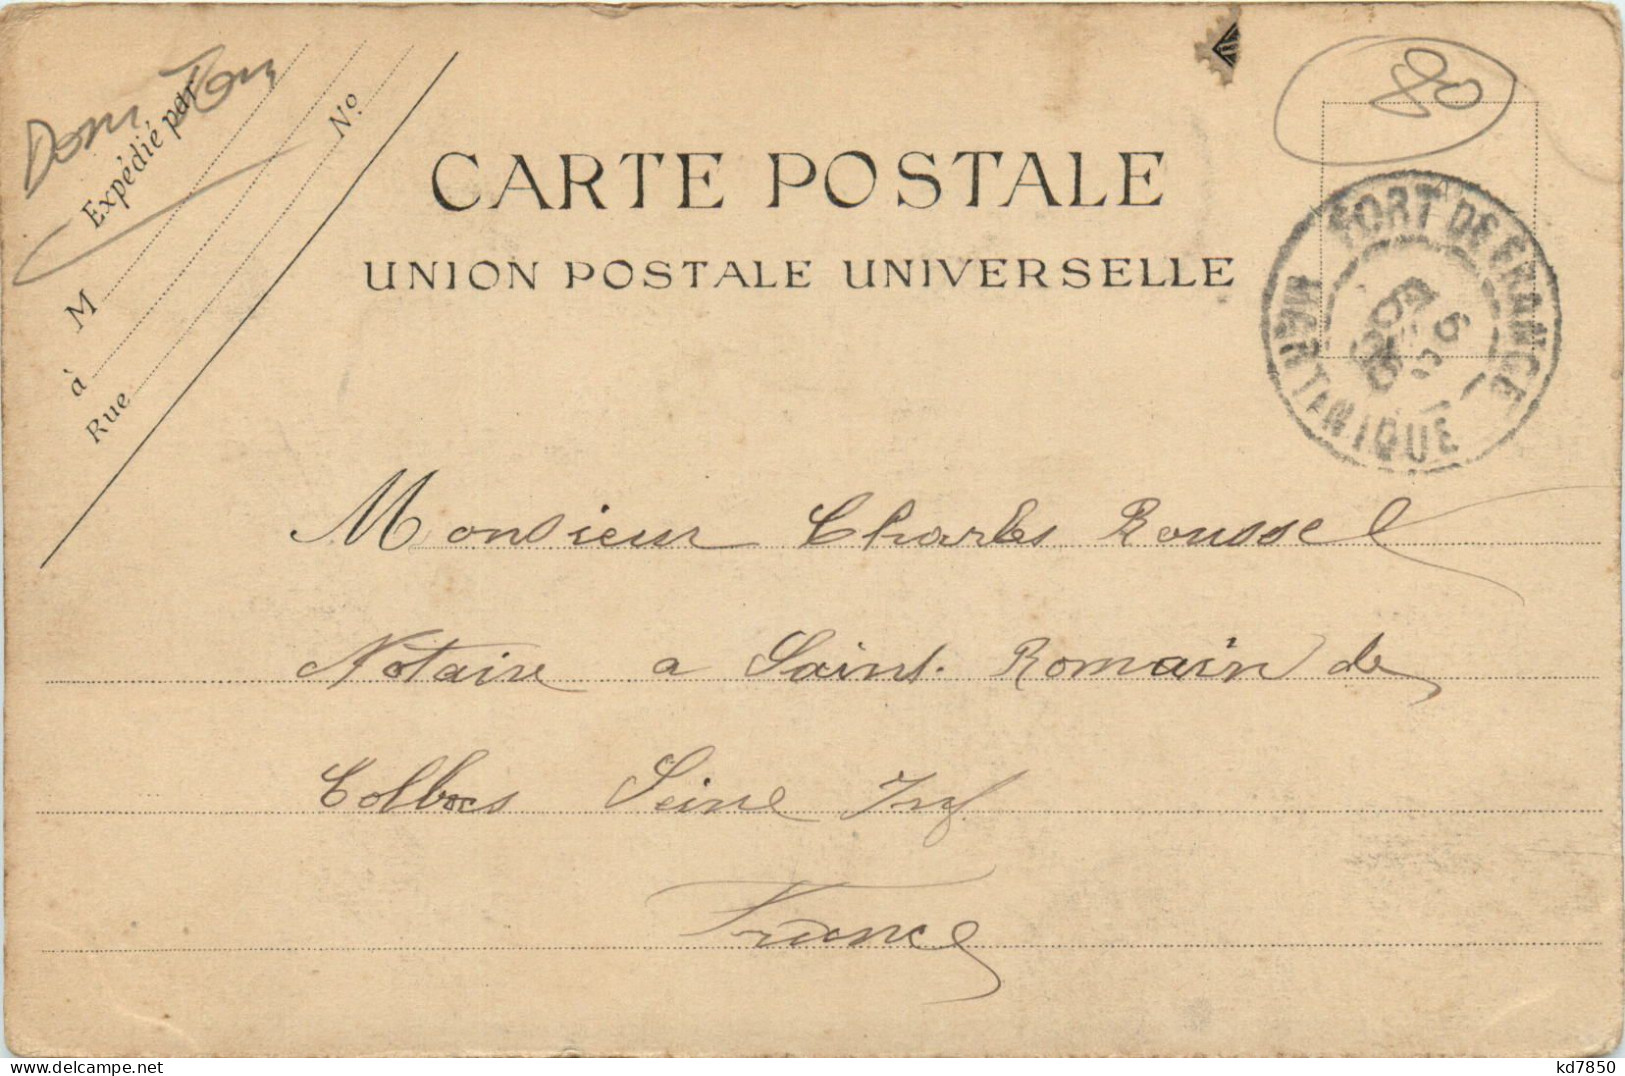 Dom Tom
80
Expédié par
M
à
Rue Nº
CARTE POSTALE
UNION POSTALE UNIVERSELLE
FORT DE FRANCE
MARTINIQUE
Monsieur Charles Roussel
Notaire a Saint. Romain de
Colbocs Seine Inf
France
kd7850